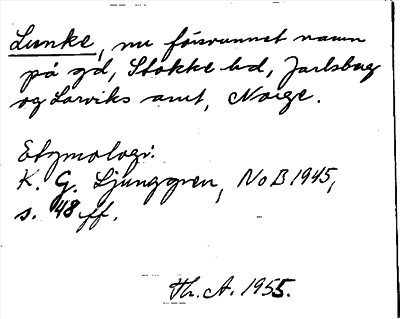 Lunke, nu försvunnet namn
på gd, Stokke hd, Jarlsberg
og Larviks amt, Norge.
Etymologi:
K. G. Ljunggren, NoB 1945,
s. 48 ff.
Th. A. 1955.